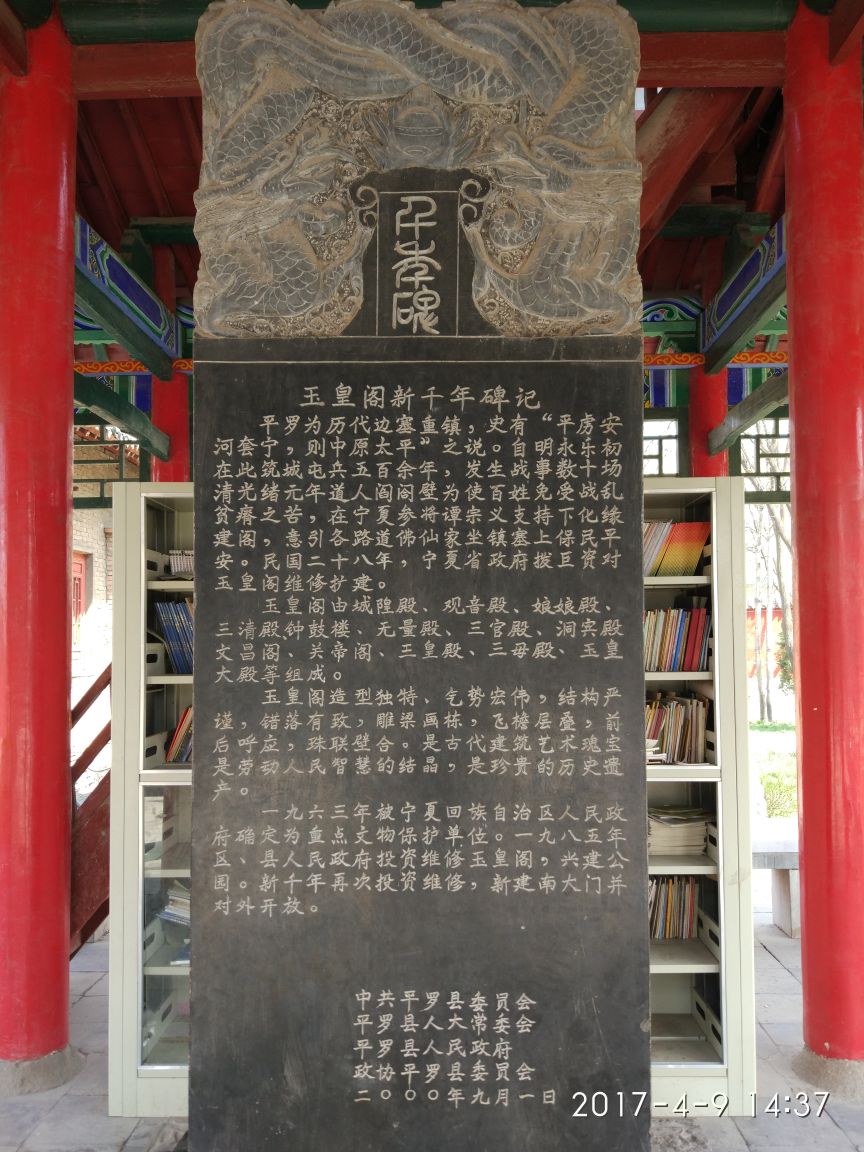 千年碑
玉皇阁新千年碑记
平罗，为历代边塞重镇，史有“平虏安
河套宁，则中原太平”之说。明永乐初
在此筑城屯兵五百余年，发生战事数十场
清光绪元年，道人阎阁壁，为使百姓免受战乱
贫瘠之苦，在宁夏参将谭宗义支持下化缘
建阁。意引各路道佛，仙家坐镇塞上保平
安。民国二十八年，宁夏省政府拨巨资对
玉皇阁维修扩建。
玉皇阁由城隍殿、观音殿、娘娘殿、
三清殿钟鼓楼、无量殿、三官殿、洞宾殿
文昌阁、关帝阁、三皇殿、三母殿、玉皇
大殿等组成。
玉皇阁造型独特、气势宏伟，结构严
谨，错落有致，雕梁画栋，飞檐层叠，前
后呼应，珠联璧合。是古代建筑艺术瑰宝
是劳动人民智慧的结晶，是珍贵的历史遗
产。
一九六三年被宁夏回族自治区人民政
府确定为重点文物保护单位。一九八五年
区、县人民政府投资维修玉皇阁，兴建公
园。新千年再次投资维修，新建南大门并
对外开放。
中共平罗县委员会
平罗县人大常委会
平罗县人民政府
政协平罗县委员会
二〇〇〇年九月一日
2017-4-9 14:37